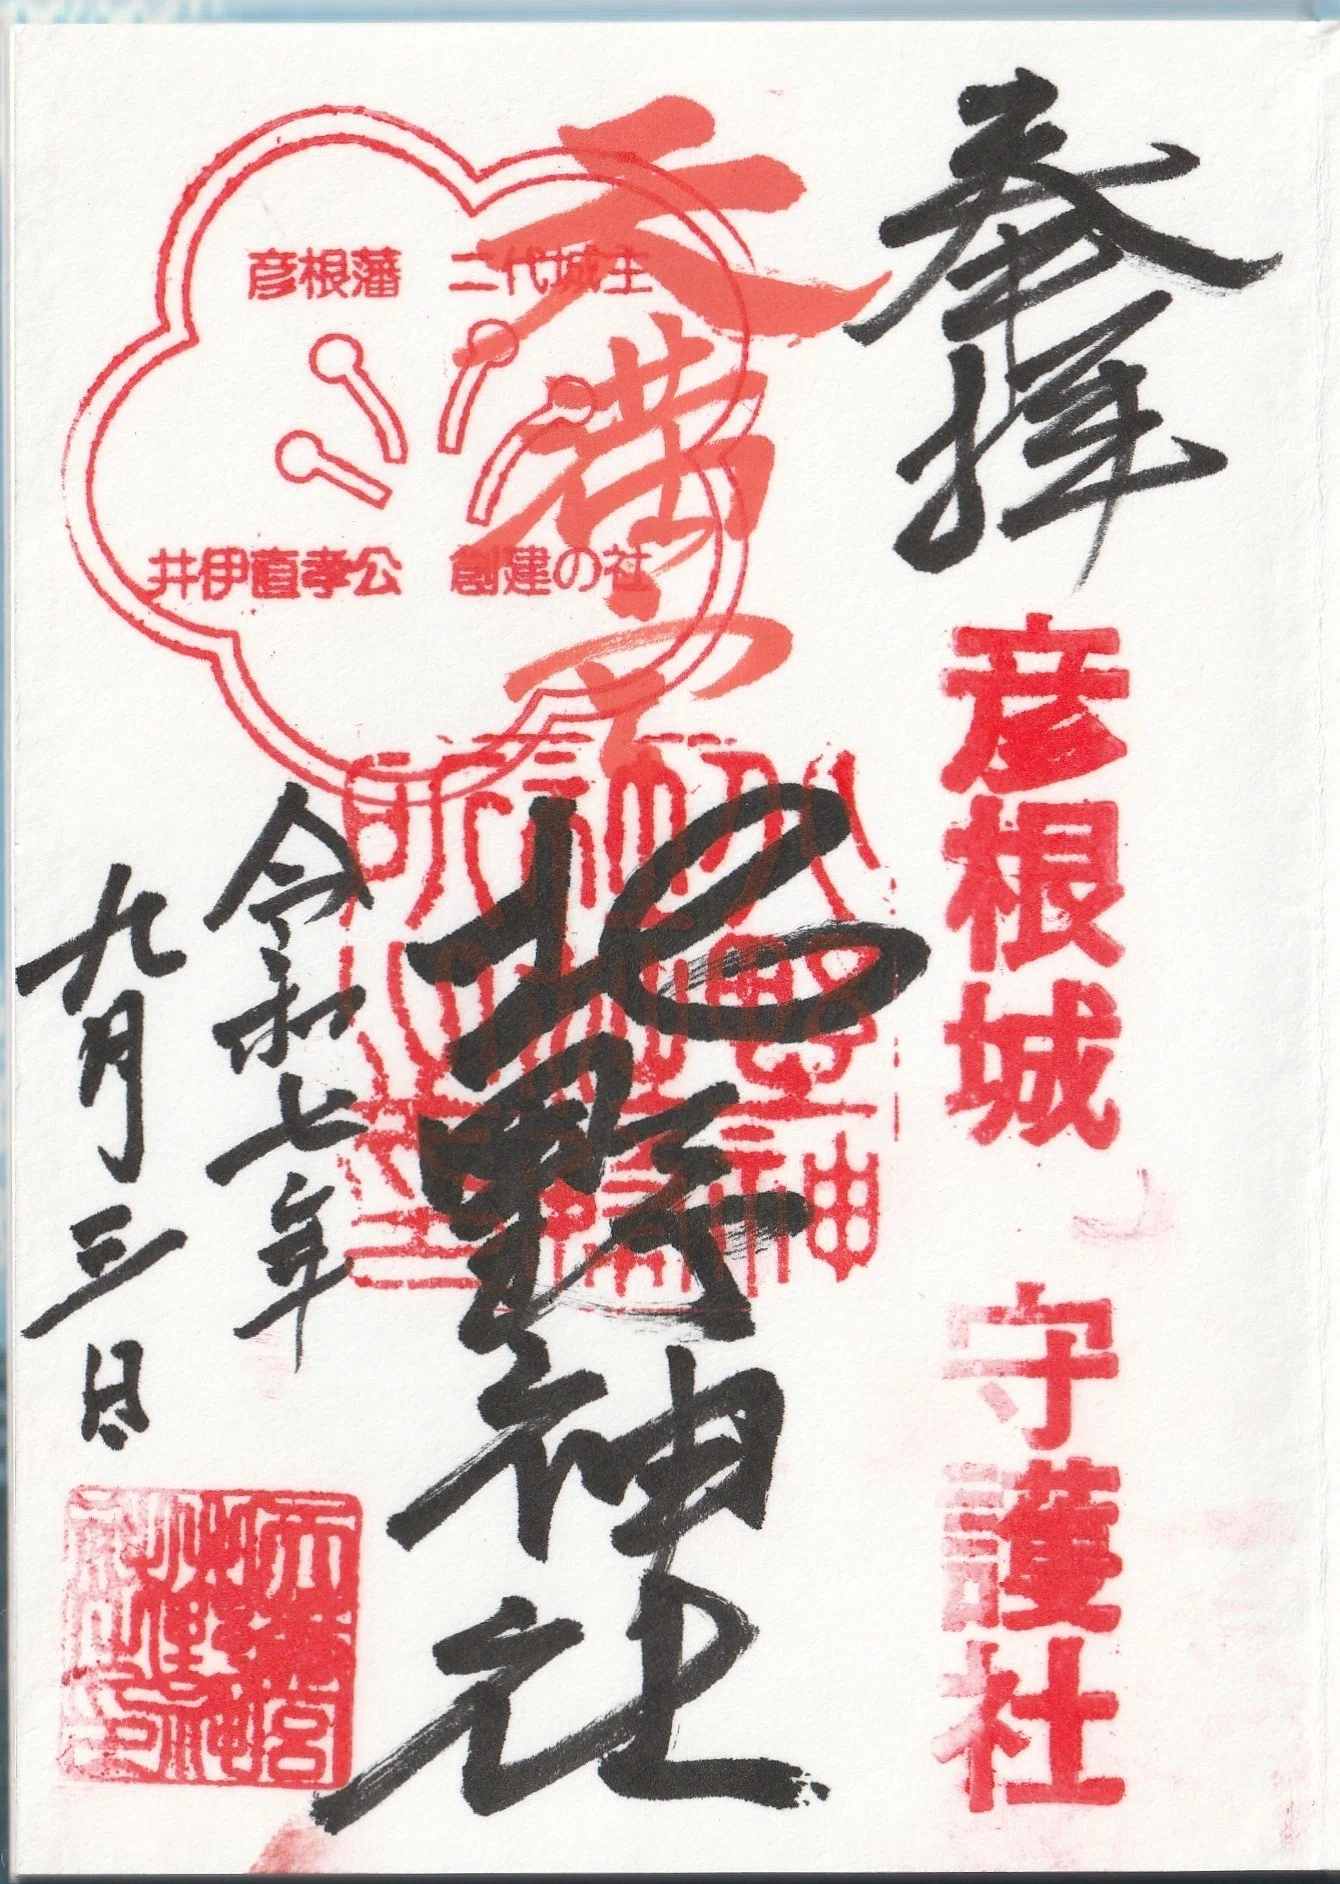 参拝
彦根城 守護社
天満宮
北野神社
彦根藩 二代城主
井伊直孝公 創建の社
令和七年
九月三日